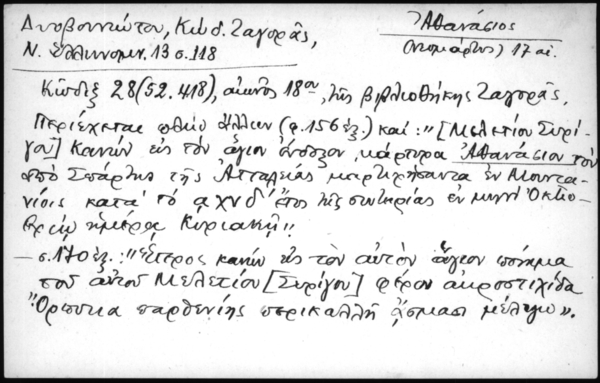 Δυοβουνιώτου, Κώδ. Ζαγορᾶς,
Ν. Ἑλληνομν. 13 σ. 118
Ἀθανάσιος
(νεομάρτυς) 17 αἰ.
Κῶδιξ 28 (52. 418), αἰῶνος 18ου, τῆς βιβλιοθήκης Ζαγορᾶς,
Περιέχεται πλὴν ἄλλων (φ. 156 ἑξ.) καί: "[Μελετίου Συρί-
γου] Κανών εἰς τὸν ἅγιον ἔνδοξον μάρτυρα Ἀθανάσιον τὸν
ἀπὸ Σπάρτης τῆς Ἀτταλείας μαρτυρήσαντα ἐν Μουντα-
νίοις κατὰ τό αχνδ' ἔτος τῆς σωτηρίας ἐν μηνὶ Ὀκτω-
βρίῳ ἡμέρᾳ Κυριακῇ"
— σ. 170 ἑξ.: "Ἕτερος κανών εἰς τὸν αὐτὸν ἅγιον ποίημα
τοῦ αὐτοῦ Μελετίου [Συρίγου] φέρον ἀκροστιχίδα
"Ὄρπηκα παρθενίης περικαλλῆ ᾄσμασι μέλπω".